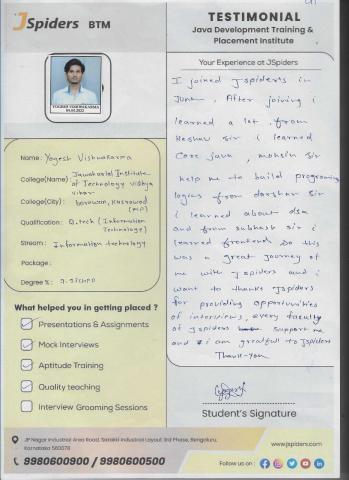 JSpiders BTM
TESTIMONIAL
Java Development Training &
Placement Institute
YOGESH VISHWAKARMA
Your Experience at JSpiders
I joined Jspiders in
June, After joining i
learned a lot, from
Keshav sir i learned
Core java, mohsin sir
help me to build programing
logics from darshan sir
i learned about dsa
and from subhash sir i
learned frontend. So this
was a great journey of
me with Jspiders and i
want to thanks Jspiders
for providing opportunities
of interviews, every faculty
of jspiders support me
and i am greatful to Jspiders
Thank-You
Student's Signature
Name: Yogesh Vishwakarma
College(Name) Jawaharlal Institute
of Technology Vidhya
Vihar
College(City): borawan, Khargone
(MP)
Qualification: B.tech (Information
Technology)
Stream: Information technology
Package:
Degree %:
What helped you in getting placed ?
Presentations & Assignments
Mock Interviews
Aptitude Training
Quality teaching
Interview Grooming Sessions
JP Nagar Industrial Area Road, Sarakki Industrial Layout 3rd Phase, Bengaluru,
Karnataka 560078
9980600900 / 9980600500
www.jspiders.com
Follow us on :